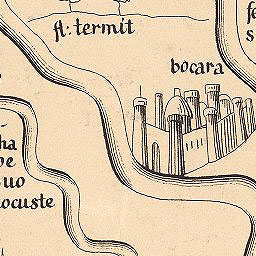 fl: termit
bocara
ha
be
suo
locuste